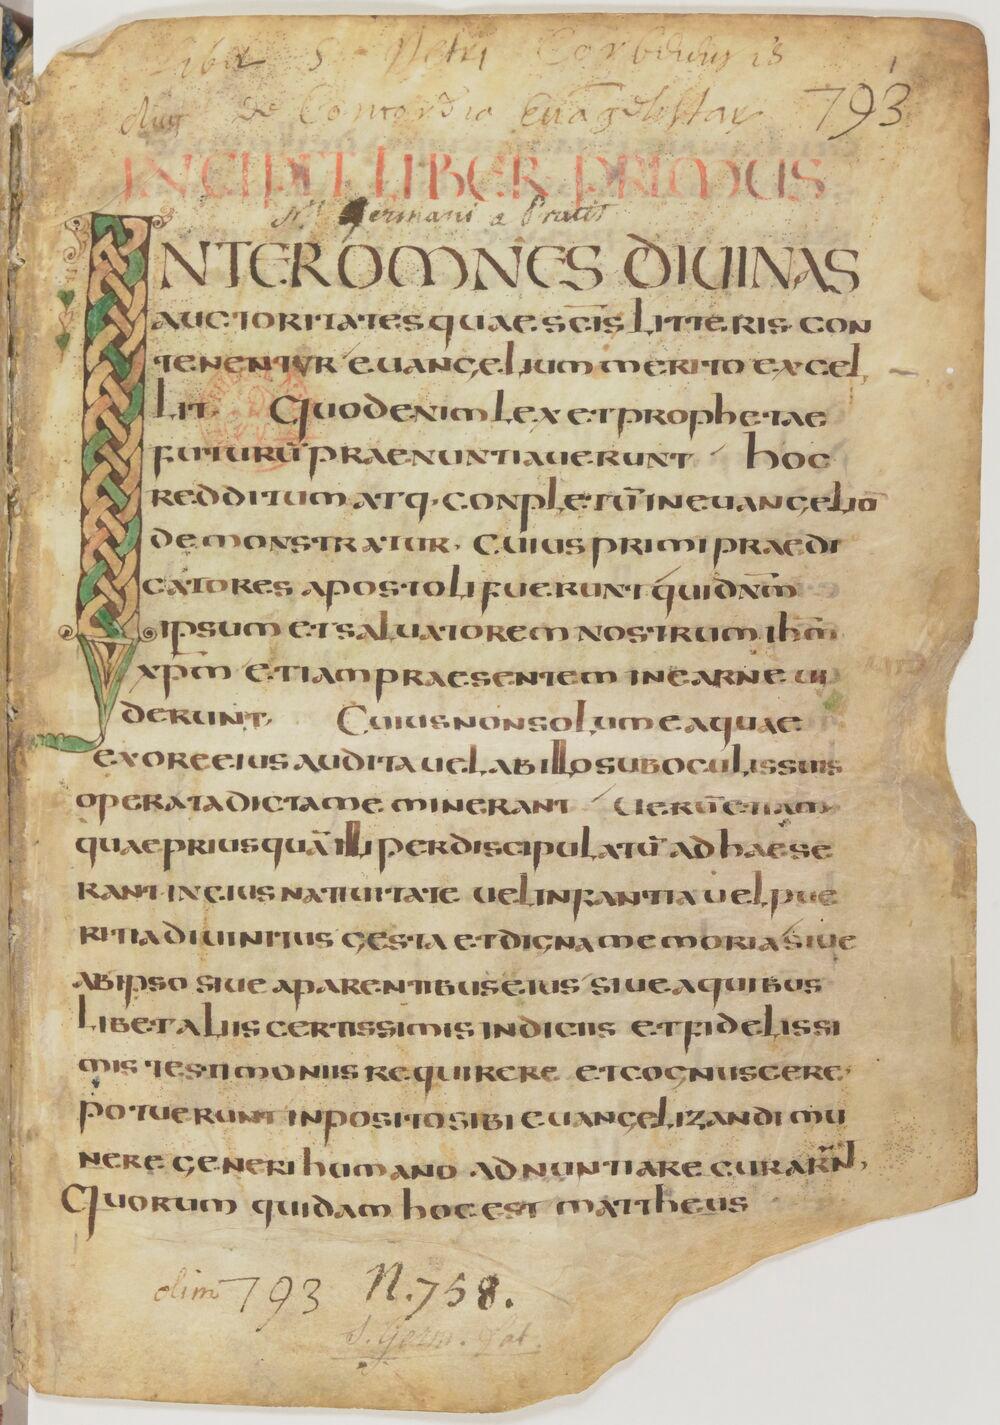 Liber S Petri Corbeiensis
Aug de Concordia Euāgelistar
793
INCIPIT LIBER PRIMUS
Sti Germani a Pratis
INTER OMNES DIUINAS
AUCTORITATES QUAE SC̄IS LITTERIS CON
TENENTUR EUANGELIUM MERITO EXCEL
LIT QUOD ENIM LEX ET PROPHETAE
FUTURŪ PRAENUNTIAUERUNT HOC
REDDITUM ATQ· CONPLETŪ IN EUANGELIO
DEMONSTRATUR· CUIUS PRIMI PRAEDI
CATORES APOSTOLI FUERUNT QUI DN̄M
IPSUM ET SALUATOREM NOSTRUM IHM̄
XPM ETIAM PRAESENTEM IN CARNE UI
DERUNT· CUIUS NON SOLUM EA QUAE
EX ORE EIUS AUDITA UEL AB ILLO SUB OCULIS SUIS
OPERATA DICTA MEMINERANT UERŪ ETIAM
QUAE PRIUS QUĀ ILLI PER DISCIPULATŪ ADHAESE
RANT IN EIUS NATIUITATE UEL INFANTIA UEL PUE
RITIA DIUINITUS GESTA ET DIGNA MEMORIA SIUE
AB IPSO SIUE A PARENTIBUS EIUS SIUE A QUIBUS
LIBET ALIIS CERTISSIMIS INDICIIS ET FIDELISSI
MIS TESTIMONIIS REQUIRERE ET COGNUSCERE
POTUERUNT INPOSITO SIBI EUANGELIZANDI MU
NERE GENERI HUMANO ADNUNTIARE CURARN̄
QUORUM QUIDAM HOC EST MATTHEUS
olim 793 N.758.
S. Germ. lat.